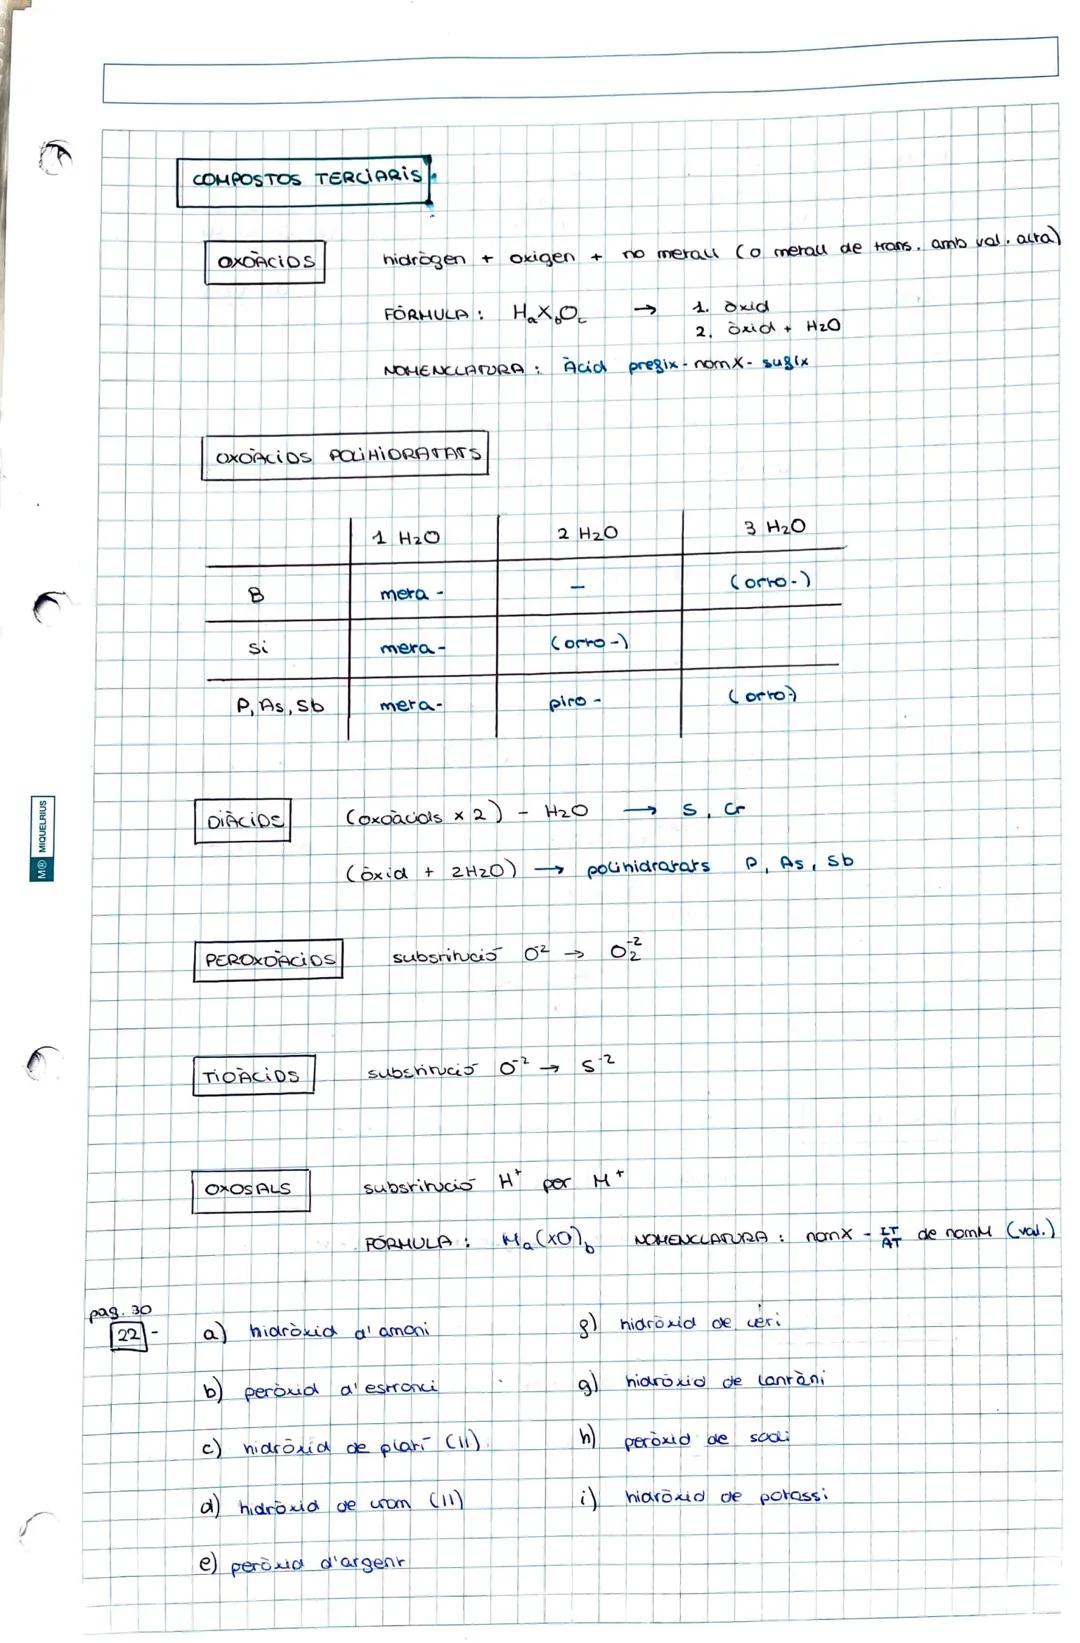 COMPOSTOS TERCIARIS
OXOÀCIDS hidrògen + oxigen + no metall (o metall de trans. amb val. alta)
FÓRMULA : HₐXbOc → 1. òxid
2. òxid + H₂O
NOMENCLATURA : Àcid prefix - nomX - sufix
OXOÀCIDS POLIHIDRATATS
1 H₂O 2 H₂O 3 H₂O
B meta - - (orto-)
Si meta- (orto-)
P, As, Sb meta- piro - (orto-)
DIÀCIDS (oxoàcids x 2) - H₂O → S, Cr
(òxid + 2H₂O) → polihidratats P, As, Sb
PEROXOÀCIDS substitució O² → O₂⁻²
TIOÀCIDS substitució O⁻² → S⁻²
OXOSALS substitució H⁺ per M⁺
FÓRMULA : Mₐ(XO)b NOMENCLATURA : nomX - IT AT de nomM (val.)
pag. 30
22 - a) hidròxid d'amoni
b) peròxid d'estronci
c) hidròxid de platí (II)
d) hidròxid de crom (II)
e) peròxid d'argent
f) hidròxid de ceri
g) hidròxid de lantàni
h) peròxid de sodi
i) hidròxid de potassi
M® MIQUELRIUS